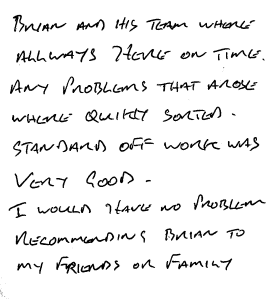 BRIAN AND HIS TEAM WHERE
ALLWAYS HERE ON TIME.
ANY PROBLEMS THAT AROSE
WHERE QUIKLY SORTED.
STANDARD OFF WORK WAS
VERY GOOD.
I WOULD HAVE NO PROBLEM
RECOMMENDING BRIAN TO
MY FRIENDS OR FAMILY